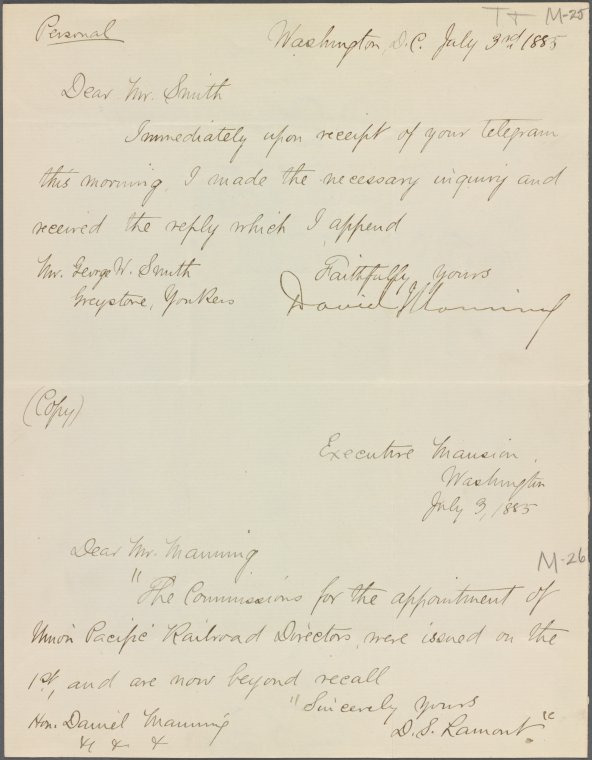 T+ M-25
Personal
Washington, D.C. July 3rd 1885
Dear Mr. Smith
Immediately upon receipt of your telegram
this morning, I made the necessary inquiry and
received the reply which I append
Mr. George W. Smith
Greystone, Yonkers
Faithfully yours
Daniel Manning
(Copy)
Executive Mansion,
Washington
July 3, 1885
Dear Mr. Manning
M-26
"The Commissions for the appointment of
Union Pacific Railroad Directors, were issued on the
1st, and are now beyond recall
"Sincerely yours
D. S. Lamont."
Hon. Daniel Manning